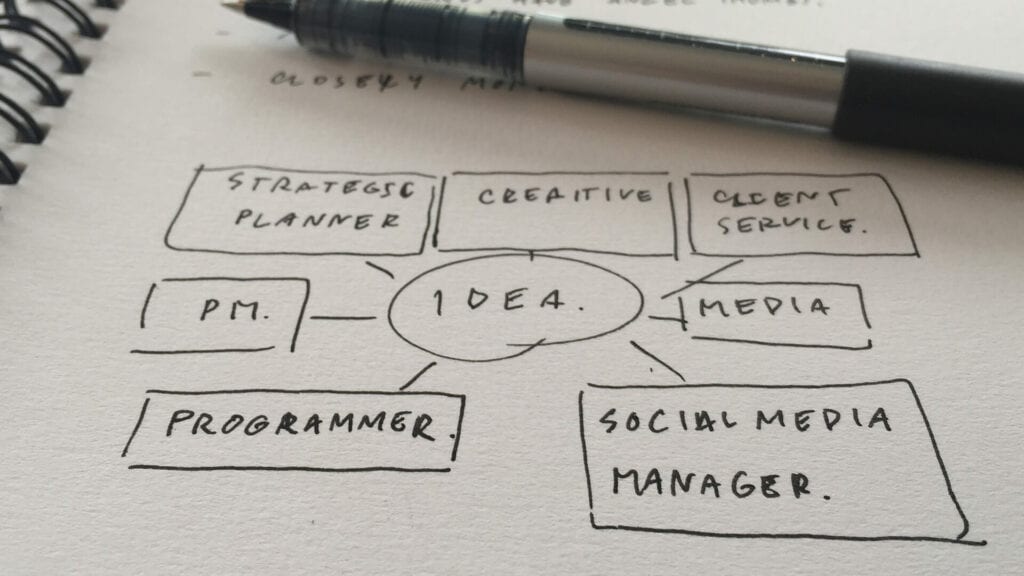 - CLOSELY
STRATEGIC
PLANNER
CREAITIVE
CLIENT
SERVICE.
PM.
IDEA.
MEDIA
PROGRAMMER.
SOCIAL MEDIA
MANAGER.